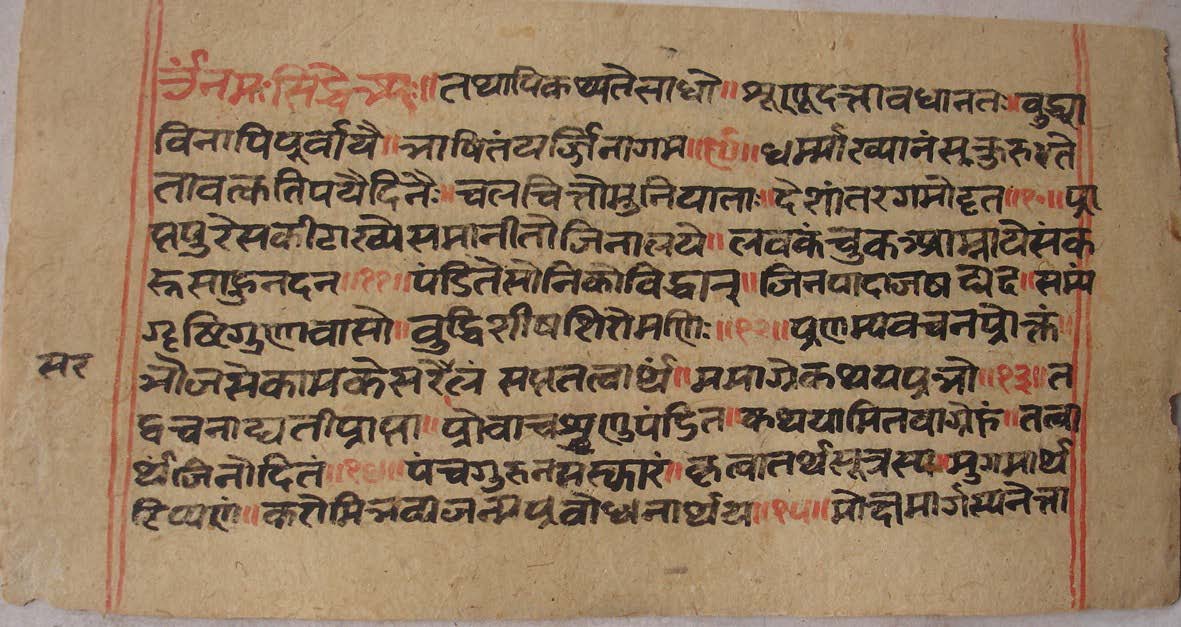 ॐ नमः सिद्धेभ्यः॥ तथापि कथ्यते साधो॥ श्रृणु दत्तावधानतः॥ वुद्ध्या
विनापि पूर्वाचार्यै॥ भाषितं यर्ज्जिनागम॥९॥ धर्म्माख्यानं सुकुरुते
तावत्कतिपयैदिनैः॥ चलचित्तौ मुनि याताः॥ देशांतरगमोद्दत॥१०॥ प्रा
प्तपुरे सकीटाख्ये समानीतो जिनालये॥ लवकंचुकआम्नाये सक
रू साहुनदन॥११॥ पंडितै सोनिको विद्वान्॥ जिनपादाज षट्पद॥ सम्य
गृष्टि गुणावासो॥ वुद्धिशीष शिरोमणिः॥१२॥ प्रणम्य वचन प्रोक्तं
भौजसे कामकेसरैलं सप्ततत्वार्थं॥ ममाग्रे कथय प्रभो॥१३॥ त
द्वचनाद्यती प्राप्ता॥ प्रोवाच श्रृणु पंडित॥ कथयामि तवाग्रेहं॥ तत्वा
र्थं जिनोदितं॥१४॥ पंचगुरुनमस्कारं॥ कृत्वा तर्थसूत्रस्य॥ सुगमार्थ
टिप्पणं॥ करोमि भव्यजन्य प्रवोधनार्थाय॥१५॥ मोक्षमार्गस्य नेत्ता
सर